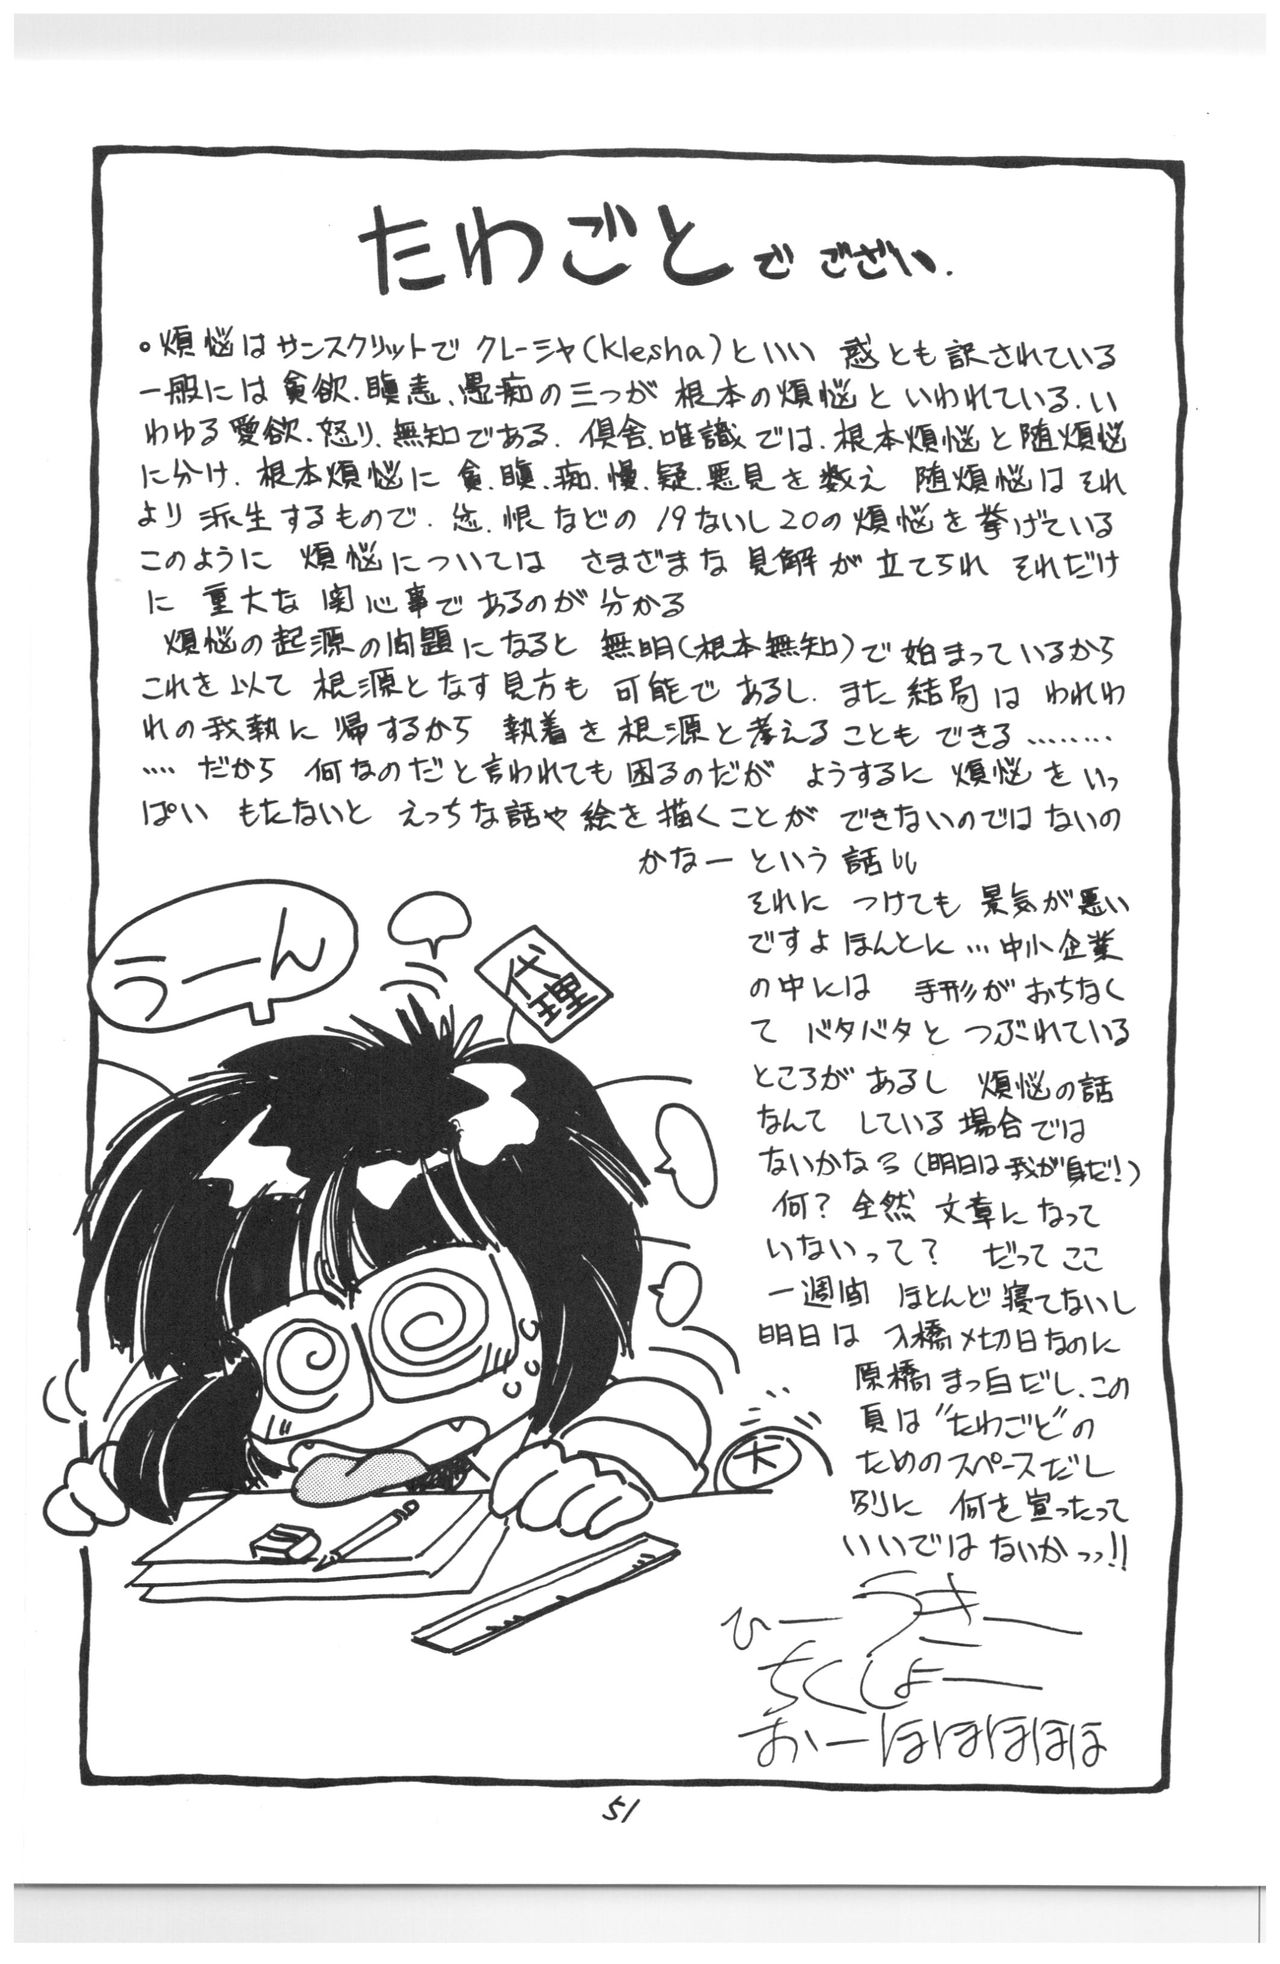 たわごとでござい.
。煩悩はサンスクリットでクレーシャ(Klesha)といい 惑とも訳されている
一般には貪欲.瞋恚.愚痴の三つが 根本の煩悩といわれている.い
わゆる愛欲.怒り.無知である. 倶舎.唯識では.根本煩悩と随煩悩
に分け.根本煩悩に 貪.瞋.痴.慢.疑.悪見を数え 随煩悩はそれ
より派生するもので.忿.恨などの19ないし20の煩悩を挙げている
このように 煩悩については さまざまな見解が立てられ それだけ
に 重大な関心事であるのが分かる
煩悩の起源の問題になると 無明(根本無知)で始まっているから
これを以て 根源となす見方も 可能であるし.また結局は われわ
れの我執に 帰するから 執着を根源と考えることもできる………
…. だから 何なのだと言われても困るのだが ようするに 煩悩をいっ
ぱい もたないと えっちな話や絵を描くことが できないのではないの
かなーという話
それに つけても 景気が悪い
ですよほんとに…中小企業
の中には 手形がおちなく
て バタバタと つぶれている
ところがあるし 煩悩の話
なんて している場合では
ないかなぅ(明日は我が身だ!)
何? 全然 文章になって
いないって? だってここ
一週間 ほとんど寝てないし
明日は 入橋〆切日なのに
原橋まっ白だし.この
頁は"たわごと"の
ためのスペースだし
別に 何を宣ったって
いいではないかっっ!!
ひーうきー
ちくしょー
おーほほほほほ
うーん
代理
大
51